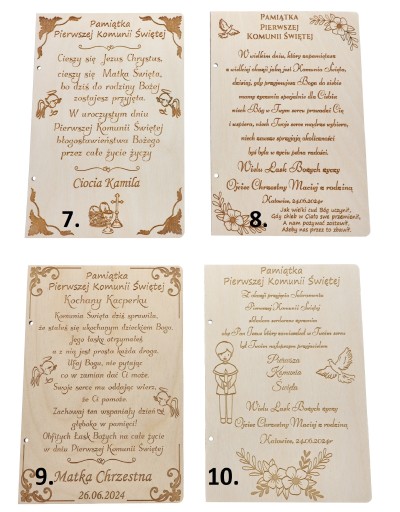 Pamiątka
Pierwszej Komunii Świętej
Cieszy się Jezus Chrystus,
cieszy się Matka Święta,
bo dziś do rodziny Bożej
zostajesz przyjęta.
W uroczystym dniu
Pierwszej Komunii Świętej
błogosławieństwa Bożego
przez całe życie życzy
Ciocia Kamila
7.
Pamiątka
Pierwszej
Komunii Świętej
W wielkim dniu, który zapoczątkowuje
w wielkiej okazji jaką jest Komunia Święta,
dzisiaj, gdy przyjmujesz Boga do siebie
mamy życzenia specjalnie dla Ciebie
niech Bóg w Twym sercu prowadzi Cię
i wspiera, niech Twoje serce mądrze wybiera,
niech zawsze sprzyjają okoliczności
byś była w życiu pełna radości.
Wielu Łask Bożych życzy
Ojciec Chrzestny Maciej z rodziną
Katowice, 24.06.2024r
Jak wielki cud Bóg uczynił,
Gdy chleb w Ciało swe przemienił,
A nam pożywać zostawił,
Ażeby nas przez to zbawił.
8.
Pamiątka
Pierwszej Komunii Świętej
Kochany Kacperku
Komunia Święta dziś sprawiła,
że stałeś się ukochanym dzieckiem Boga,
Jego łaskę otrzymałeś
a z nią jest prosta każda droga.
Ufaj Bogu, nie pytając
co w zamian dać Ci może.
Swoje serce mu oddając wierz,
że Ci pomoże.
Zachowaj ten wspaniały dzień
głęboko w pamięci!
Obfitych Łask Bożych na całe życie
w dniu Pierwszej Komunii Świętej
Matka Chrzestna
26.06.2024
9.
Pamiątka
Pierwszej Komunii Świętej
Z okazji przyjęcia Sakramentu
Pierwszej Komunii Świętej
aby Pan Jezus który zamieszkał w Twoim sercu
był Twoim najlepszym przyjacielem
Pierwsza
Komunia
Święta
Wielu Łask Bożych życzy
Ojciec Chrzestny Maciej z rodziną
Katowice, 24.06.2024r
10.